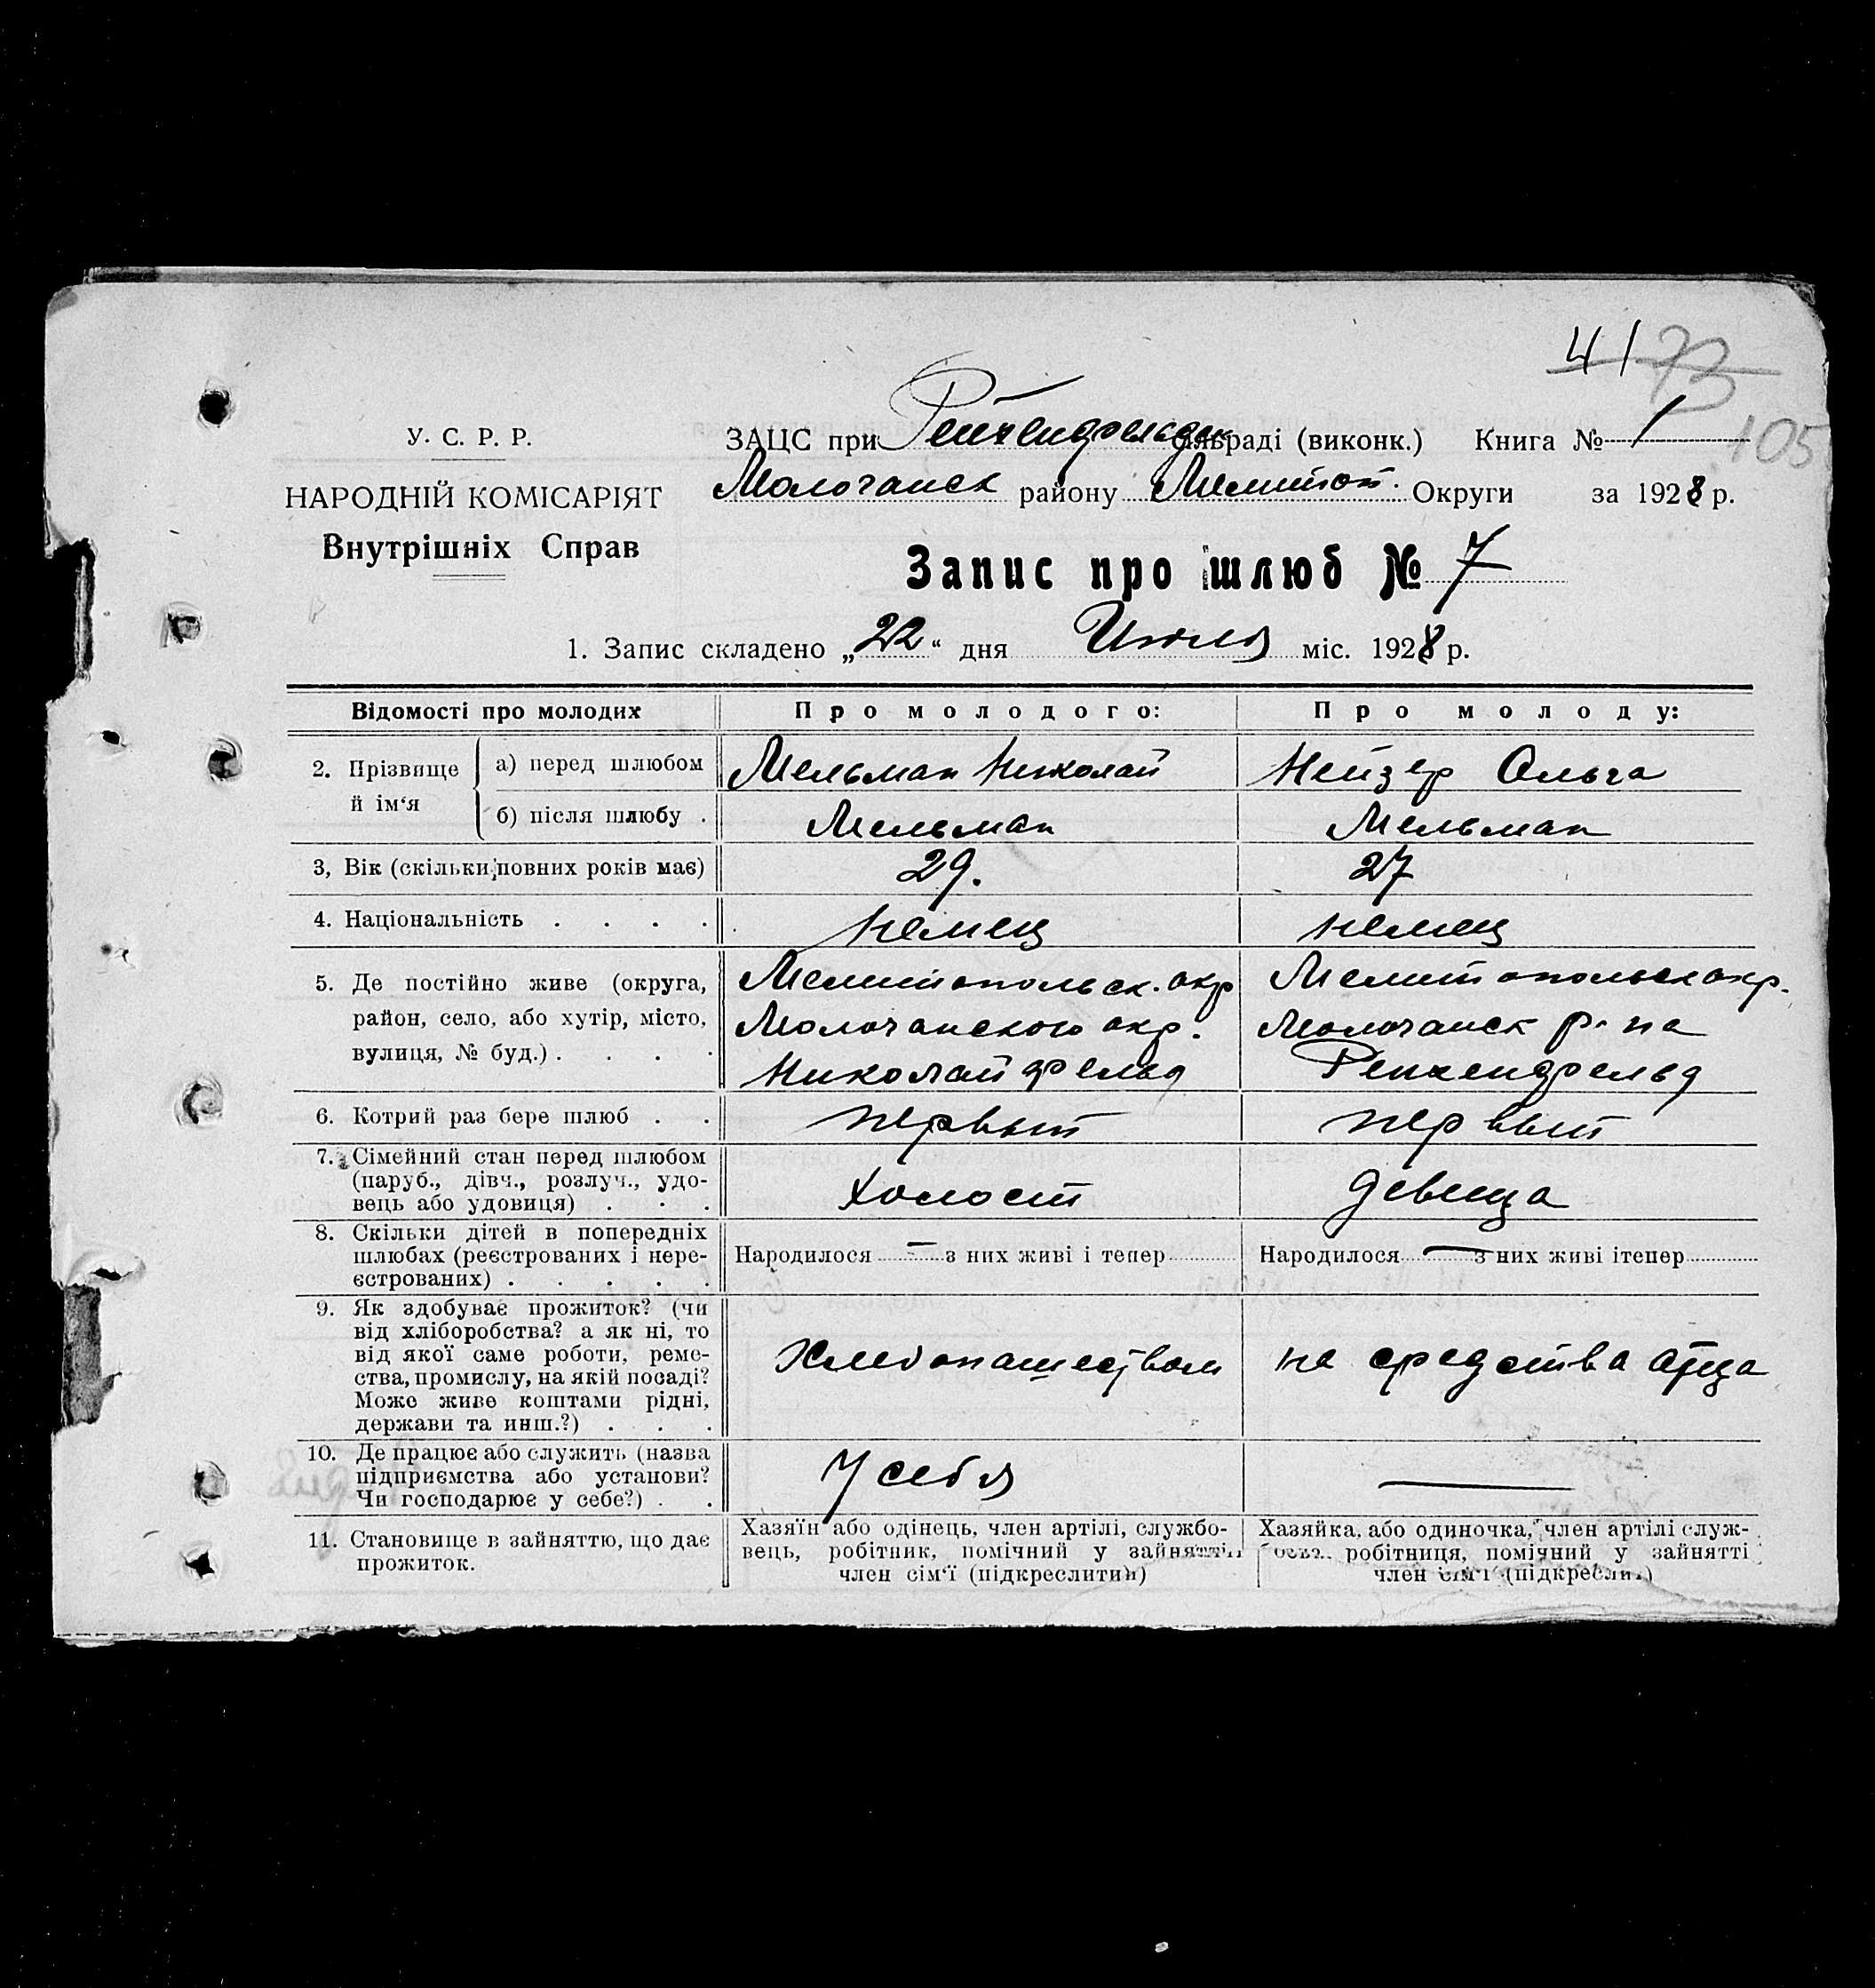 41 73
105
У. С. Р. Р.
НАРОДНІЙ КОМІСАРІЯТ
Внутрішніх Справ
ЗАЦС при Рейхенфельдск сільраді (виконк.) Книга № 1
Молочанск району Мелитоп. Округи за 1928 р.
Запис про шлюб № 7
1. Запис складено „22“ дня Июля міс. 1928 р.
Відомості про молодих
Про молодого:
Про молоду:
2. Прізвище й ім‘я
а) перед шлюбом
Мельман Николай
Нейзер Ольга
б) після шлюбу .
Мельман
Мельман
3, Вік (скільки повних років має)
29.
27
4. Національність . . . .
немец
немец
5. Де постійно живе (округа,
район, село, або хутір, місто,
вулиця, № буд.) . . . .
Мелитопольск. окр
Молочанского окр.
Николайфельд
Мелитопольск окр.
Молочанск р-на
Рейхенфельд
6. Котрий раз бере шлюб . .
первый
первый
7. Сімейний стан перед шлюбом
(паруб., дівч., розлуч., удо-
вець або удовиця) . . .
холост
девица
8. Скільки дітей в попередніх
шлюбах (реєстрованих і нере-
єстрованих) . . . . .
Народилося — з них живі і тепер
Народилося — з них живі ітепер
9. Як здобуває прожиток? (чи
від хліборобства? а як ні, то
від якої саме роботи, реме-
ства, промислу, на якій посаді?
Може живе коштами рідні,
держави та инш.?) . . .
Хлебопашеством
на средства отца
10. Де працює або служить (назва
підприємства або установи?
Чи господарює у себе?) . .
У себя
—
11. Становище в зайняттю, що дає
прожиток.
Хазяїн або одінець, член артілі, службо-
вець, робітник, помічний у зайнятті
член сім‘ї (підкреслити)
Хазяйка, або одиночка, член артілі служ-
бова. робітниця, помічний у зайнятті
член сім‘ї (підкреслит)